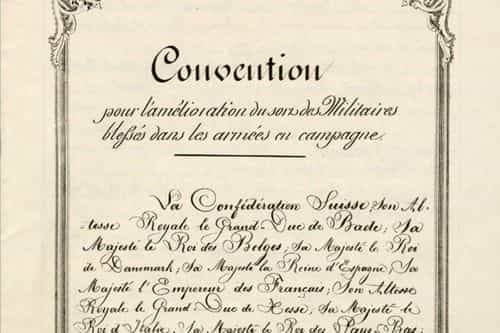 Convention
pour l'amélioration du sort des Militaires
blessés dans les armées en campagne.
La Confédération Suisse, Son Al-
tesse Royale le Grand-Duc de Bade; Sa
Majesté le Roi des Belges; Sa Majesté le Roi
de Danemark; Sa Majesté la Reine d'Espagne; Sa
Majesté l'Empereur des Français; Son Altesse
Royale le Grand Duc de Hesse, Sa Majesté le
Roi d'Italie; Sa Majesté le Roi des Pays-Bas;